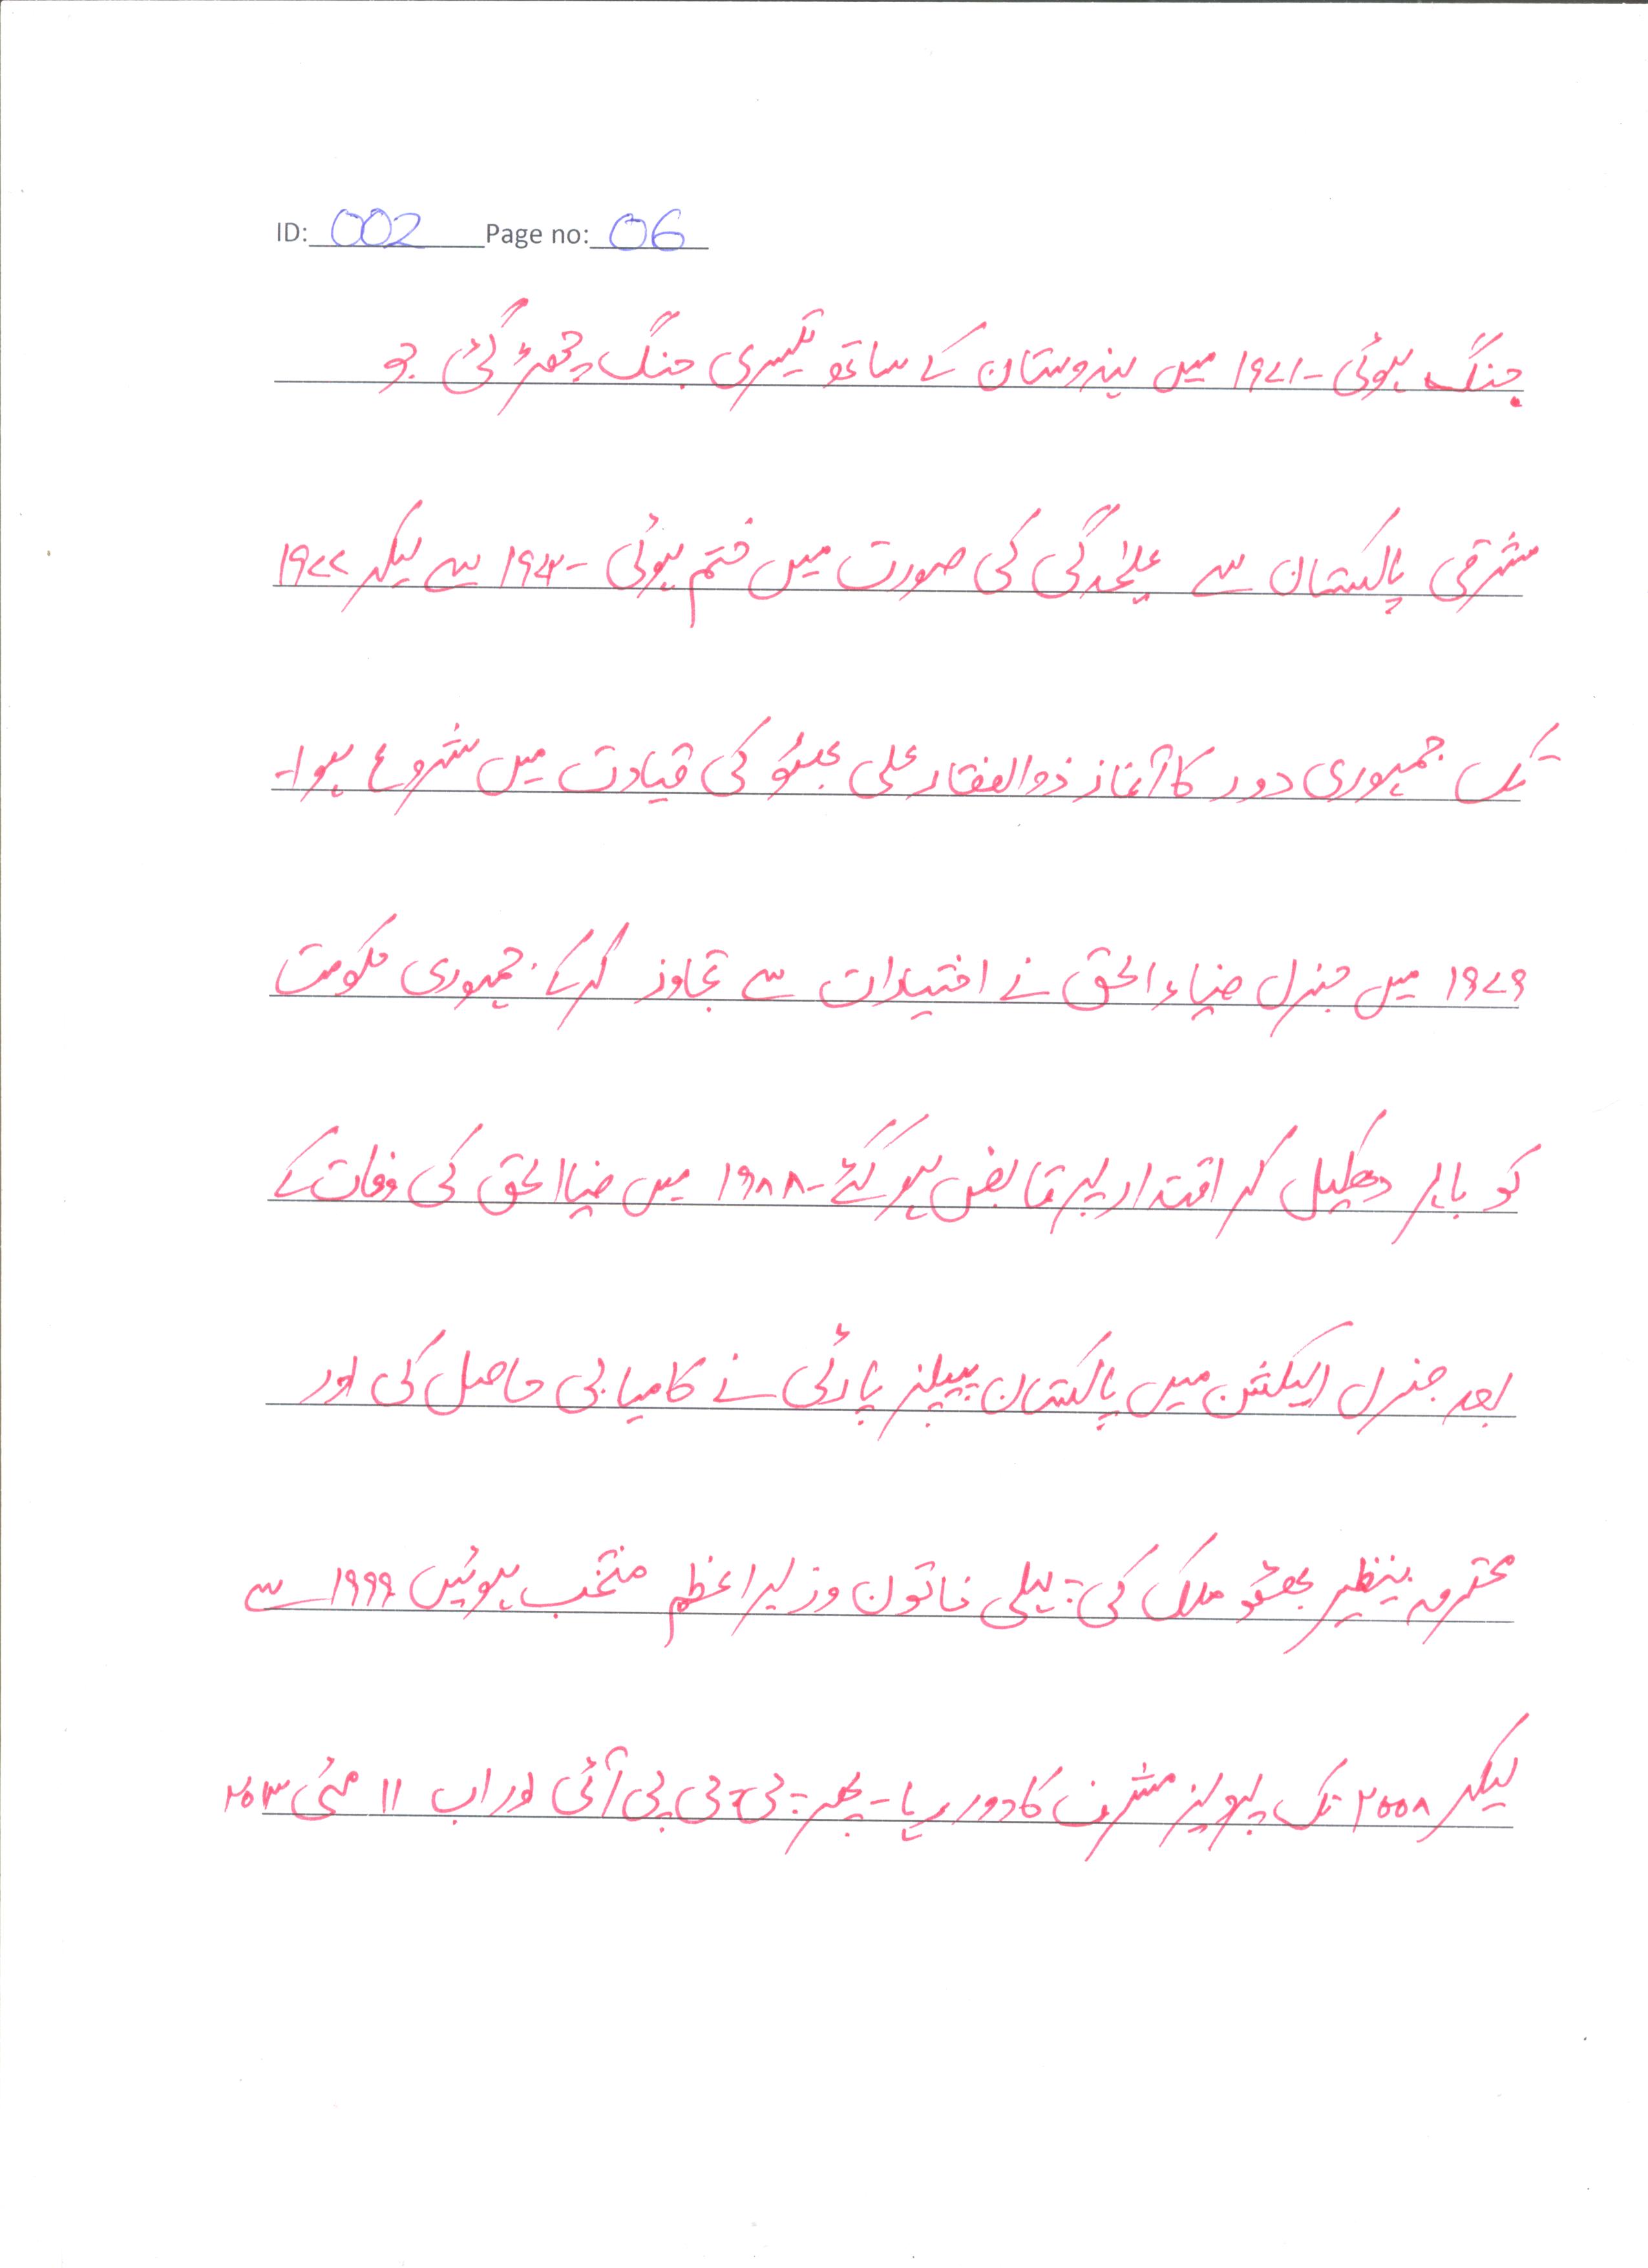 ID: 002 Page no: 06
جنگ ہوئی ۔ ۱۹۷۱ میں ہندوستان کے ساتھ تیسری جنگ چھڑ گئی جو
مشرقی پاکستان سے علیٰحدگی کی صورت میں ختم ہوئی ۔ ۱۹۷۲ سے لیکر ۱۹۷۷
تک جمہوری دور کا آغاز ذوالفقار علی بھٹو کی قیادت میں شروع ہوا ۔
۱۹۷۹ میں جنرل ضیاء الحق نے اختیارات سے تجاوز کر کے جمہوری حکومت
کو باہر دھکیل کر اقتدار پر قابض ہو گئے ۔ ۱۹۸۸ میں ضیا الحق کی وفات کے
بعد جنرل الیکشن میں پاکستان پیپلز پارٹی نے کامیابی حاصل کی اور
محترمہ بینظیر بھٹو ملک کی پہلی خاتون وزیر اعظم منتخب ہوئیں ۱۹۹۹ سے
لیکر ۲۰۰۸ تک پرویز مشرف کا دور رہا ۔ پھر پی پی پی آئی اور اب ۱۱ مئی ۲۰۱۳